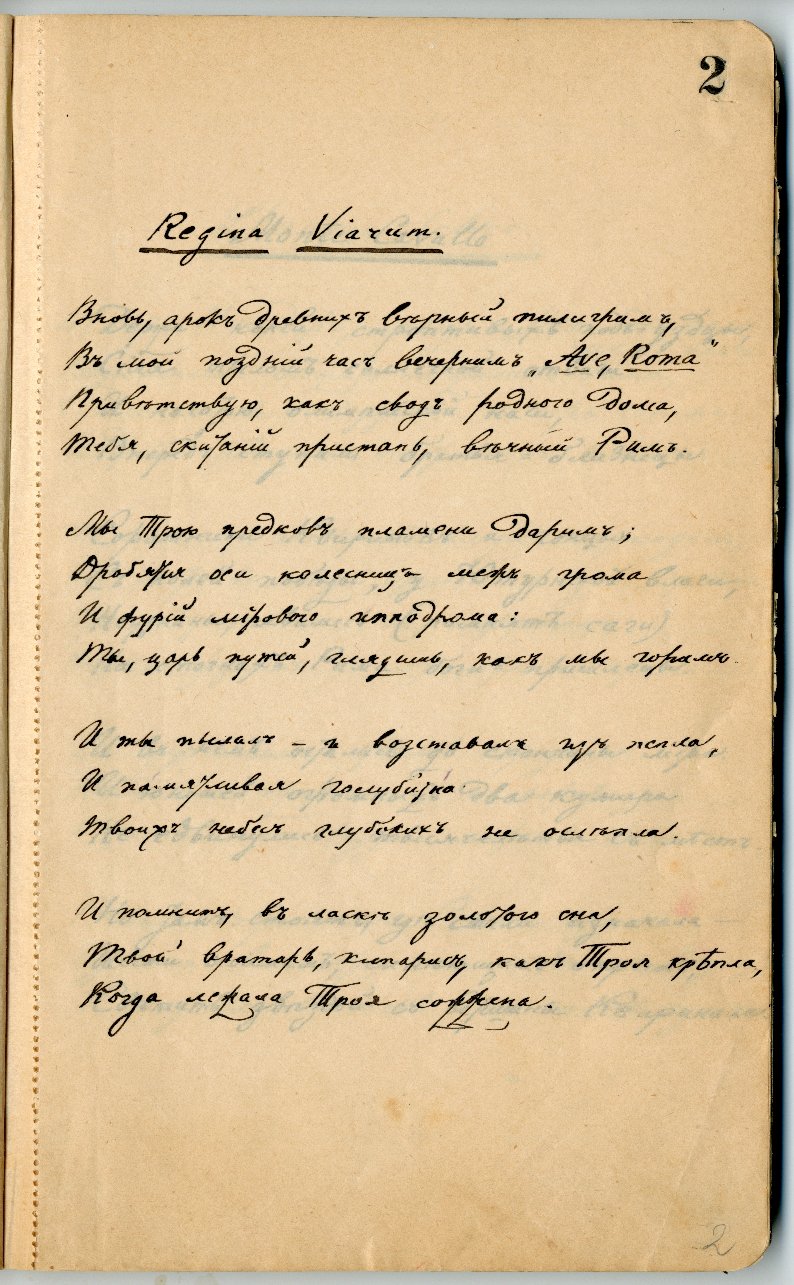 2
Regina Viarum.
Вновь, арокъ древнихъ вѣрный пилигримъ,
Въ мой поздній часъ вечернимъ „Ave, Roma“
Привѣтствую, какъ сводъ родного дома,
Тебя, скитаній пристань, вѣчный Римъ.
Мы Трою предковъ пламени даримъ;
Дробятся оси колесницъ межъ грома
И фурій мірового ипподрома:
Ты, царь путей, глядишь, какъ мы горимъ.
И ты пылалъ – и возставалъ изъ пепла,
И памятливая голубизна
Твоихъ небесъ глубокихъ не ослѣпла.
И помнитъ, въ ласкѣ золотого сна,
Твой вратарь, кипарисъ, какъ Троя крѣпла,
Когда лежала Троя сожжена.
2